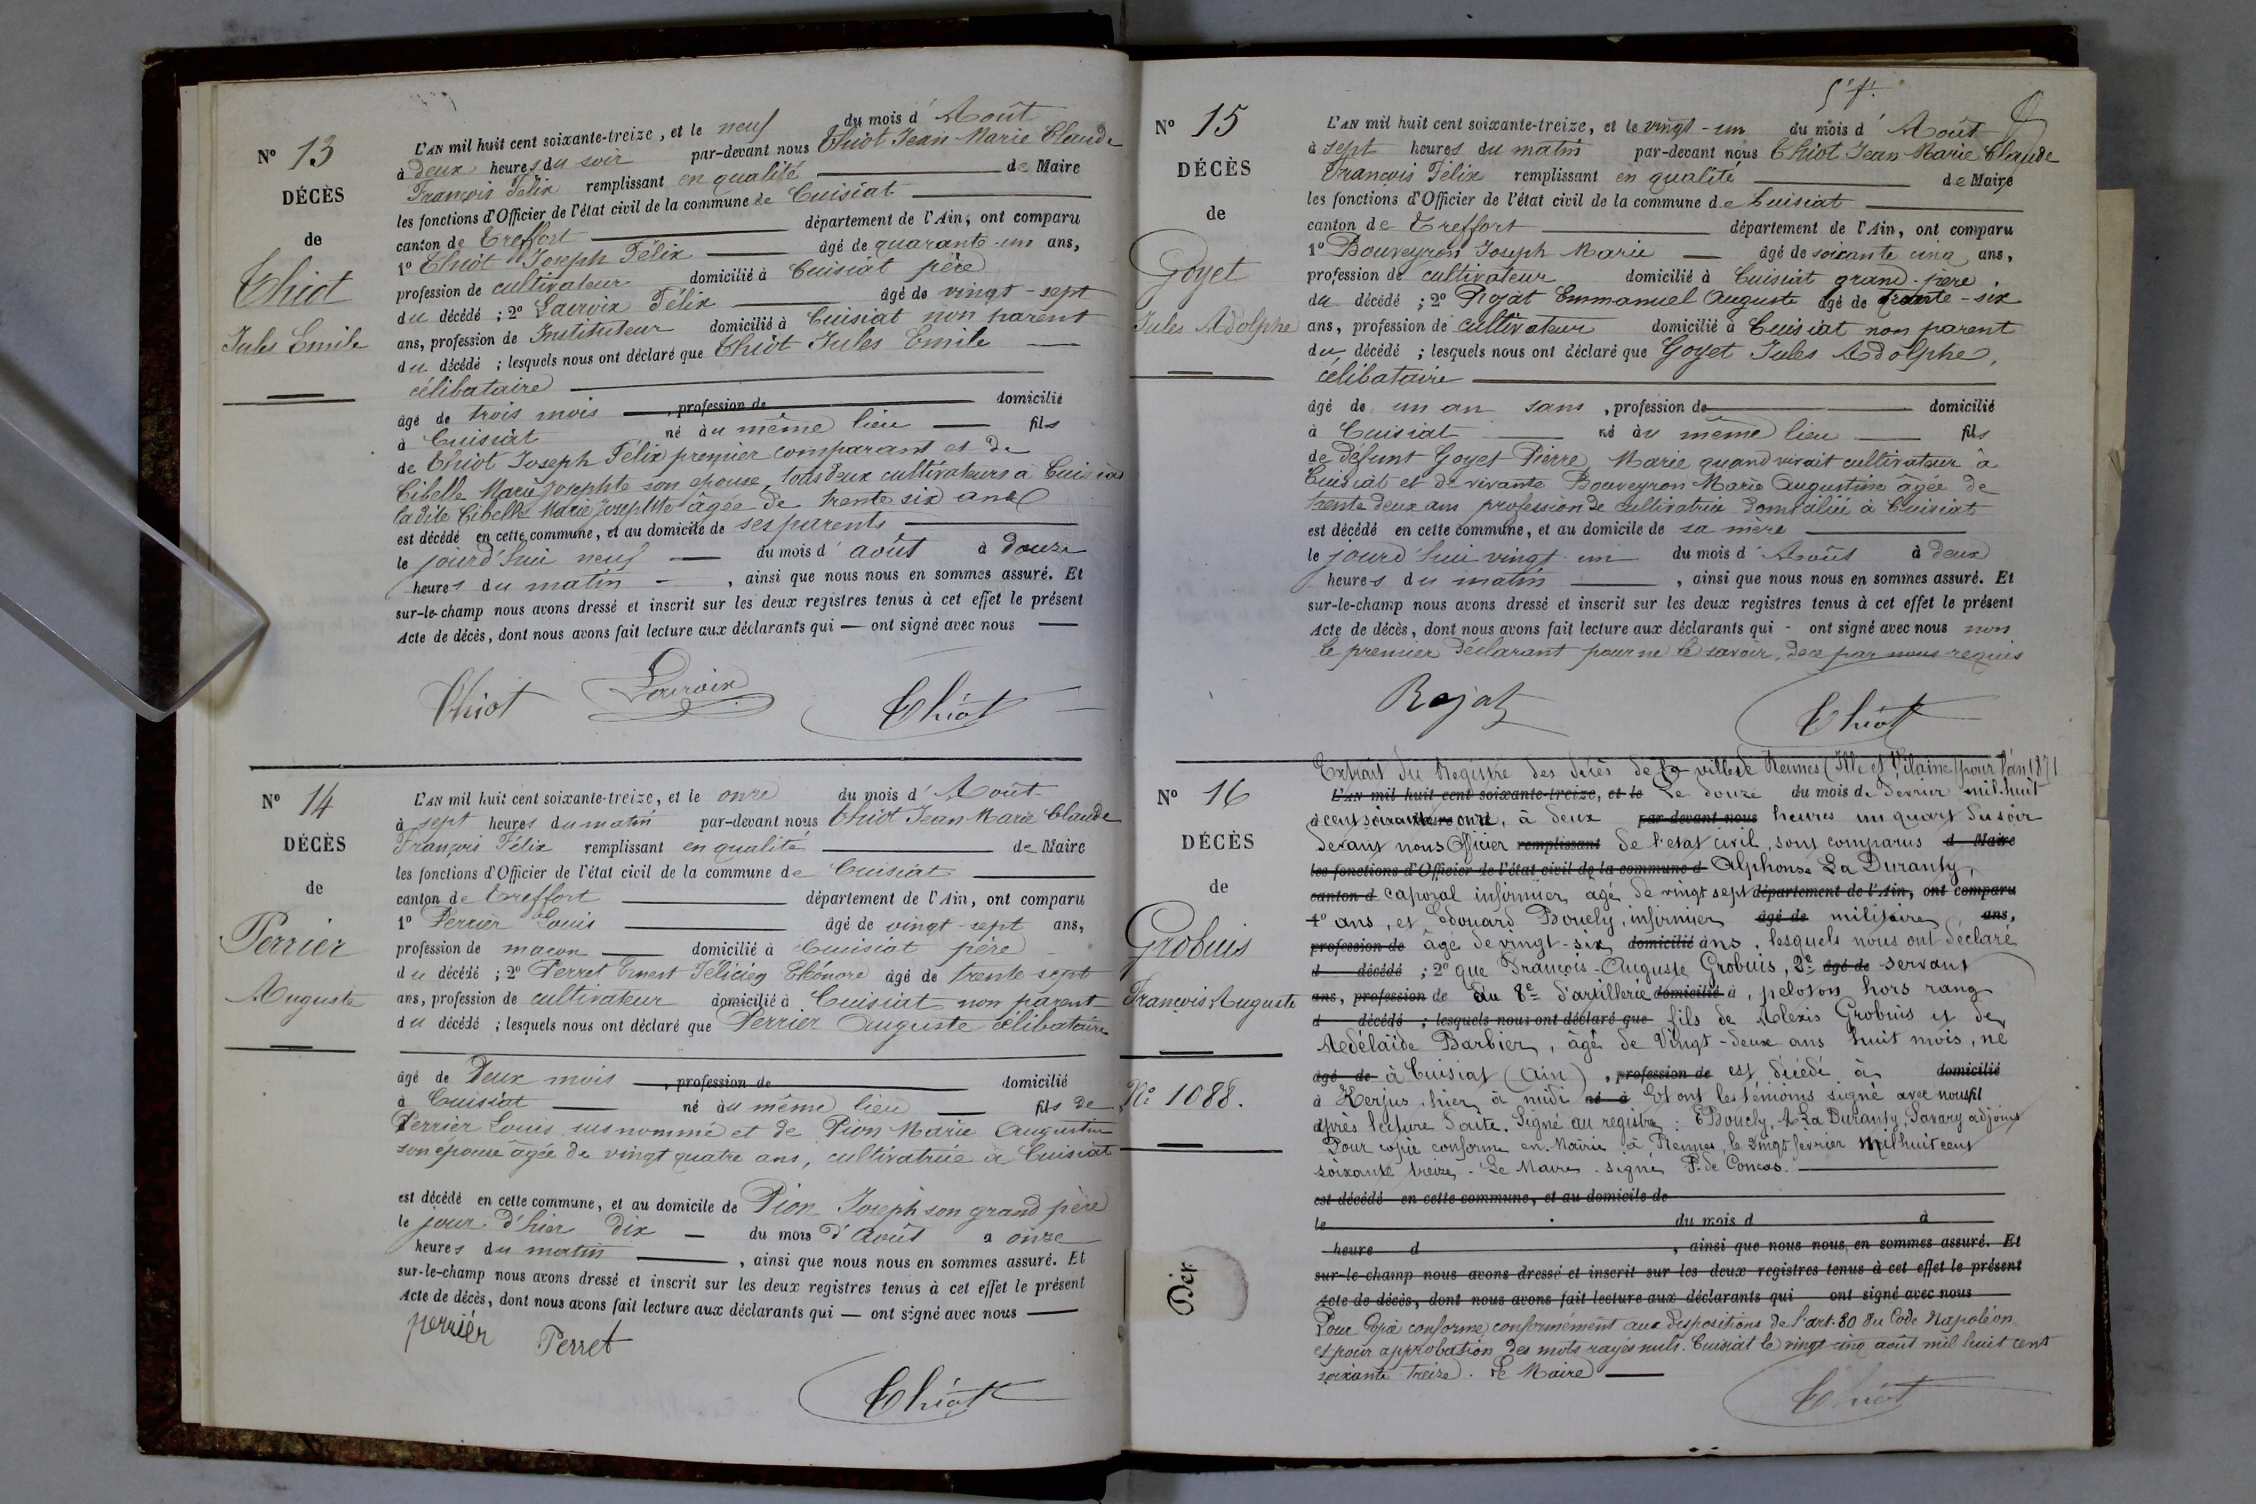 N° 13
DÉCÈS
de
Thiot
Jules Emile
L'AN mil huit cent soixante-treize, et le neuf du mois d'Août
à deux heures du soir par-devant nous Thiot Jean Marie Claude
François Félix remplissant en qualité de Maire
les fonctions d'Officier de l'état civil de la commune de Cuisiat
canton de Treffort département de l'Ain, ont comparu
1° Thiot Joseph Félix âgé de quarante-un ans,
profession de cultivateur domicilié à Cuisiat père
du décédé ; 2° Lacroix Félix âgé de vingt-sept
ans, profession de Instituteur domicilié à Cuisiat non parent
du décédé ; lesquels nous ont déclaré que Thiot Jules Emile
célibataire
âgé de trois mois , profession de domicilié
à Cuisiat né au même lieu fils
de Thiot Joseph Félix premier comparant et de
Cibelle Marie Josephte son épouse, tous deux cultivateurs à Cuisiat
ladite Cibelle Marie Josephte âgée de trente six ans
est décédé en cette commune, et au domicile de ses parents
le jourd'hui neuf du mois d'août à douze
heures du matin , ainsi que nous nous en sommes assuré. Et
sur-le-champ nous avons dressé et inscrit sur les deux registres tenus à cet effet le présent
Acte de décès, dont nous avons fait lecture aux déclarants qui — ont signé avec nous
Thiot Lacroix Thiot
N° 14
DÉCÈS
de
Perrier
Auguste
L'AN mil huit cent soixante-treize, et le onze du mois d'Août
à sept heures du matin par-devant nous Thiot Jean Marie Claude
François Félix remplissant en qualité de Maire
les fonctions d'Officier de l'état civil de la commune de Cuisiat
canton de Treffort département de l'Ain, ont comparu
1° Perrier Louis âgé de vingt-sept ans,
profession de maçon domicilié à Cuisiat père
du décédé ; 2° Perret Ernest Félicien Eléonore âgé de trente sept
ans, profession de cultivateur domicilié à Cuisiat non parent
du décédé ; lesquels nous ont déclaré que Perrier Auguste célibataire
âgé de Deux mois , profession de domicilié
à Cuisiat né au même lieu fils de
Perrier Louis susnommé et de Pion Marie Augustine
son épouse âgée de vingt quatre ans, cultivatrice à Cuisiat
est décédé en cette commune, et au domicile de Pion Joseph son grand père
le jour d'hier dix du mois d'Août à onze
heures du matin , ainsi que nous nous en sommes assuré. Et
sur-le-champ nous avons dressé et inscrit sur les deux registres tenus à cet effet le présent
Acte de décès, dont nous avons fait lecture aux déclarants qui — ont signé avec nous
perrier Perret
Thiot
N° 15
DÉCÈS
de
Goyet
Jules Adolphe
L'AN mil huit cent soixante-treize, et le vingt-un du mois d'Août
à sept heures du matin par-devant nous Thiot Jean Marie Claude
François Félix remplissant en qualité de Maire
les fonctions d'Officier de l'état civil de la commune de Cuisiat
canton de Treffort département de l'Ain, ont comparu
1° Bouveyron Joseph Marie âgé de soixante cinq ans,
profession de cultivateur domicilié à Cuisiat grand-père
du décédé ; 2° Rojat Emmanuel Auguste âgé de trente-six
ans, profession de cultivateur domicilié à Cuisiat non parent
du décédé ; lesquels nous ont déclaré que Goyet Jules Adolphe,
célibataire
âgé de un an sans , profession de domicilié
à Cuisiat né au même lieu fils
de défunt Goyet Pierre Marie quand vivait cultivateur à
Cuisiat et de vivante Bouveyron Marie Augustine âgée de
trente deux ans profession de cultivatrice domiciliée à Cuisiat
est décédé en cette commune, et au domicile de sa mère
le jourd'hui vingt-un du mois d'Août à deux
heures du matin , ainsi que nous nous en sommes assuré. Et
sur-le-champ nous avons dressé et inscrit sur les deux registres tenus à cet effet le présent
Acte de décès, dont nous avons fait lecture aux déclarants qui - ont signé avec nous non
le premier déclarant pour ne le savoir, de ce par nous requis
Rojat Thiot
N° 16
DÉCÈS
de
Grobuis
François Auguste
N° 1088.
Extrait du Registre des décès de la ville de Rennes (Ille et Vilaine) pour l'an 1871
L'AN mil huit cent soixante-treize, et le Le douze du mois de Février mil huit
à cent soixante onze, à deux par-devant nous heures un quart du soir
devant nous Officier remplissant de l'état civil, sont comparus d Maire
les fonctions d'Officier de l'état civil de la commune d Alphonse La Duranty,
canton d caporal infirmier, âgé de vingt sept département de l'Ain, ont comparu
1° ans, et Edouard Boucly, infirmier âgé de militaire, ans,
profession de âgé de vingt-six domicilié ans, lesquels nous ont déclaré
d décédé ; 2° que François-Auguste Grobuis, 2e âgé de servant
ans, profession de du 8e d'artillerie domicilié à , peloton hors rang
d décédé ; lesquels nous ont déclaré que fils de Alexis Grobuis et de
Adélaïde Barbier, âgé de Vingt-deux ans huit mois, né
âgé de à Cuisiat (Ain) , profession de est décédé à domicilié
à Kerjus, hier à midi né à Et ont les témoins signé avec nous fil
après lecture faite. Signé au registre : E Boucly, A La Duranty, Savary adjoint
Pour copie conforme en Mairie à Rennes, le vingt février mil huit cent
soixante treize. Le Maire. signé P. de
est décédé en cette commune, et au domicile de
le du mois d à
heure d , ainsi que nous nous en sommes assuré. Et
sur-le-champ nous avons dressé et inscrit sur les deux registres tenus à cet effet le présent
Acte de décès, dont nous avons fait lecture aux déclarants qui ont signé avec nous
Pour Copie conforme, conformément aux dispositions de l'art. 80 du Code Napoléon
et pour approbation des mots rayés nuls. Cuisiat le vingt cinq août mil huit cent
soixante treize. Le Maire
Thiot